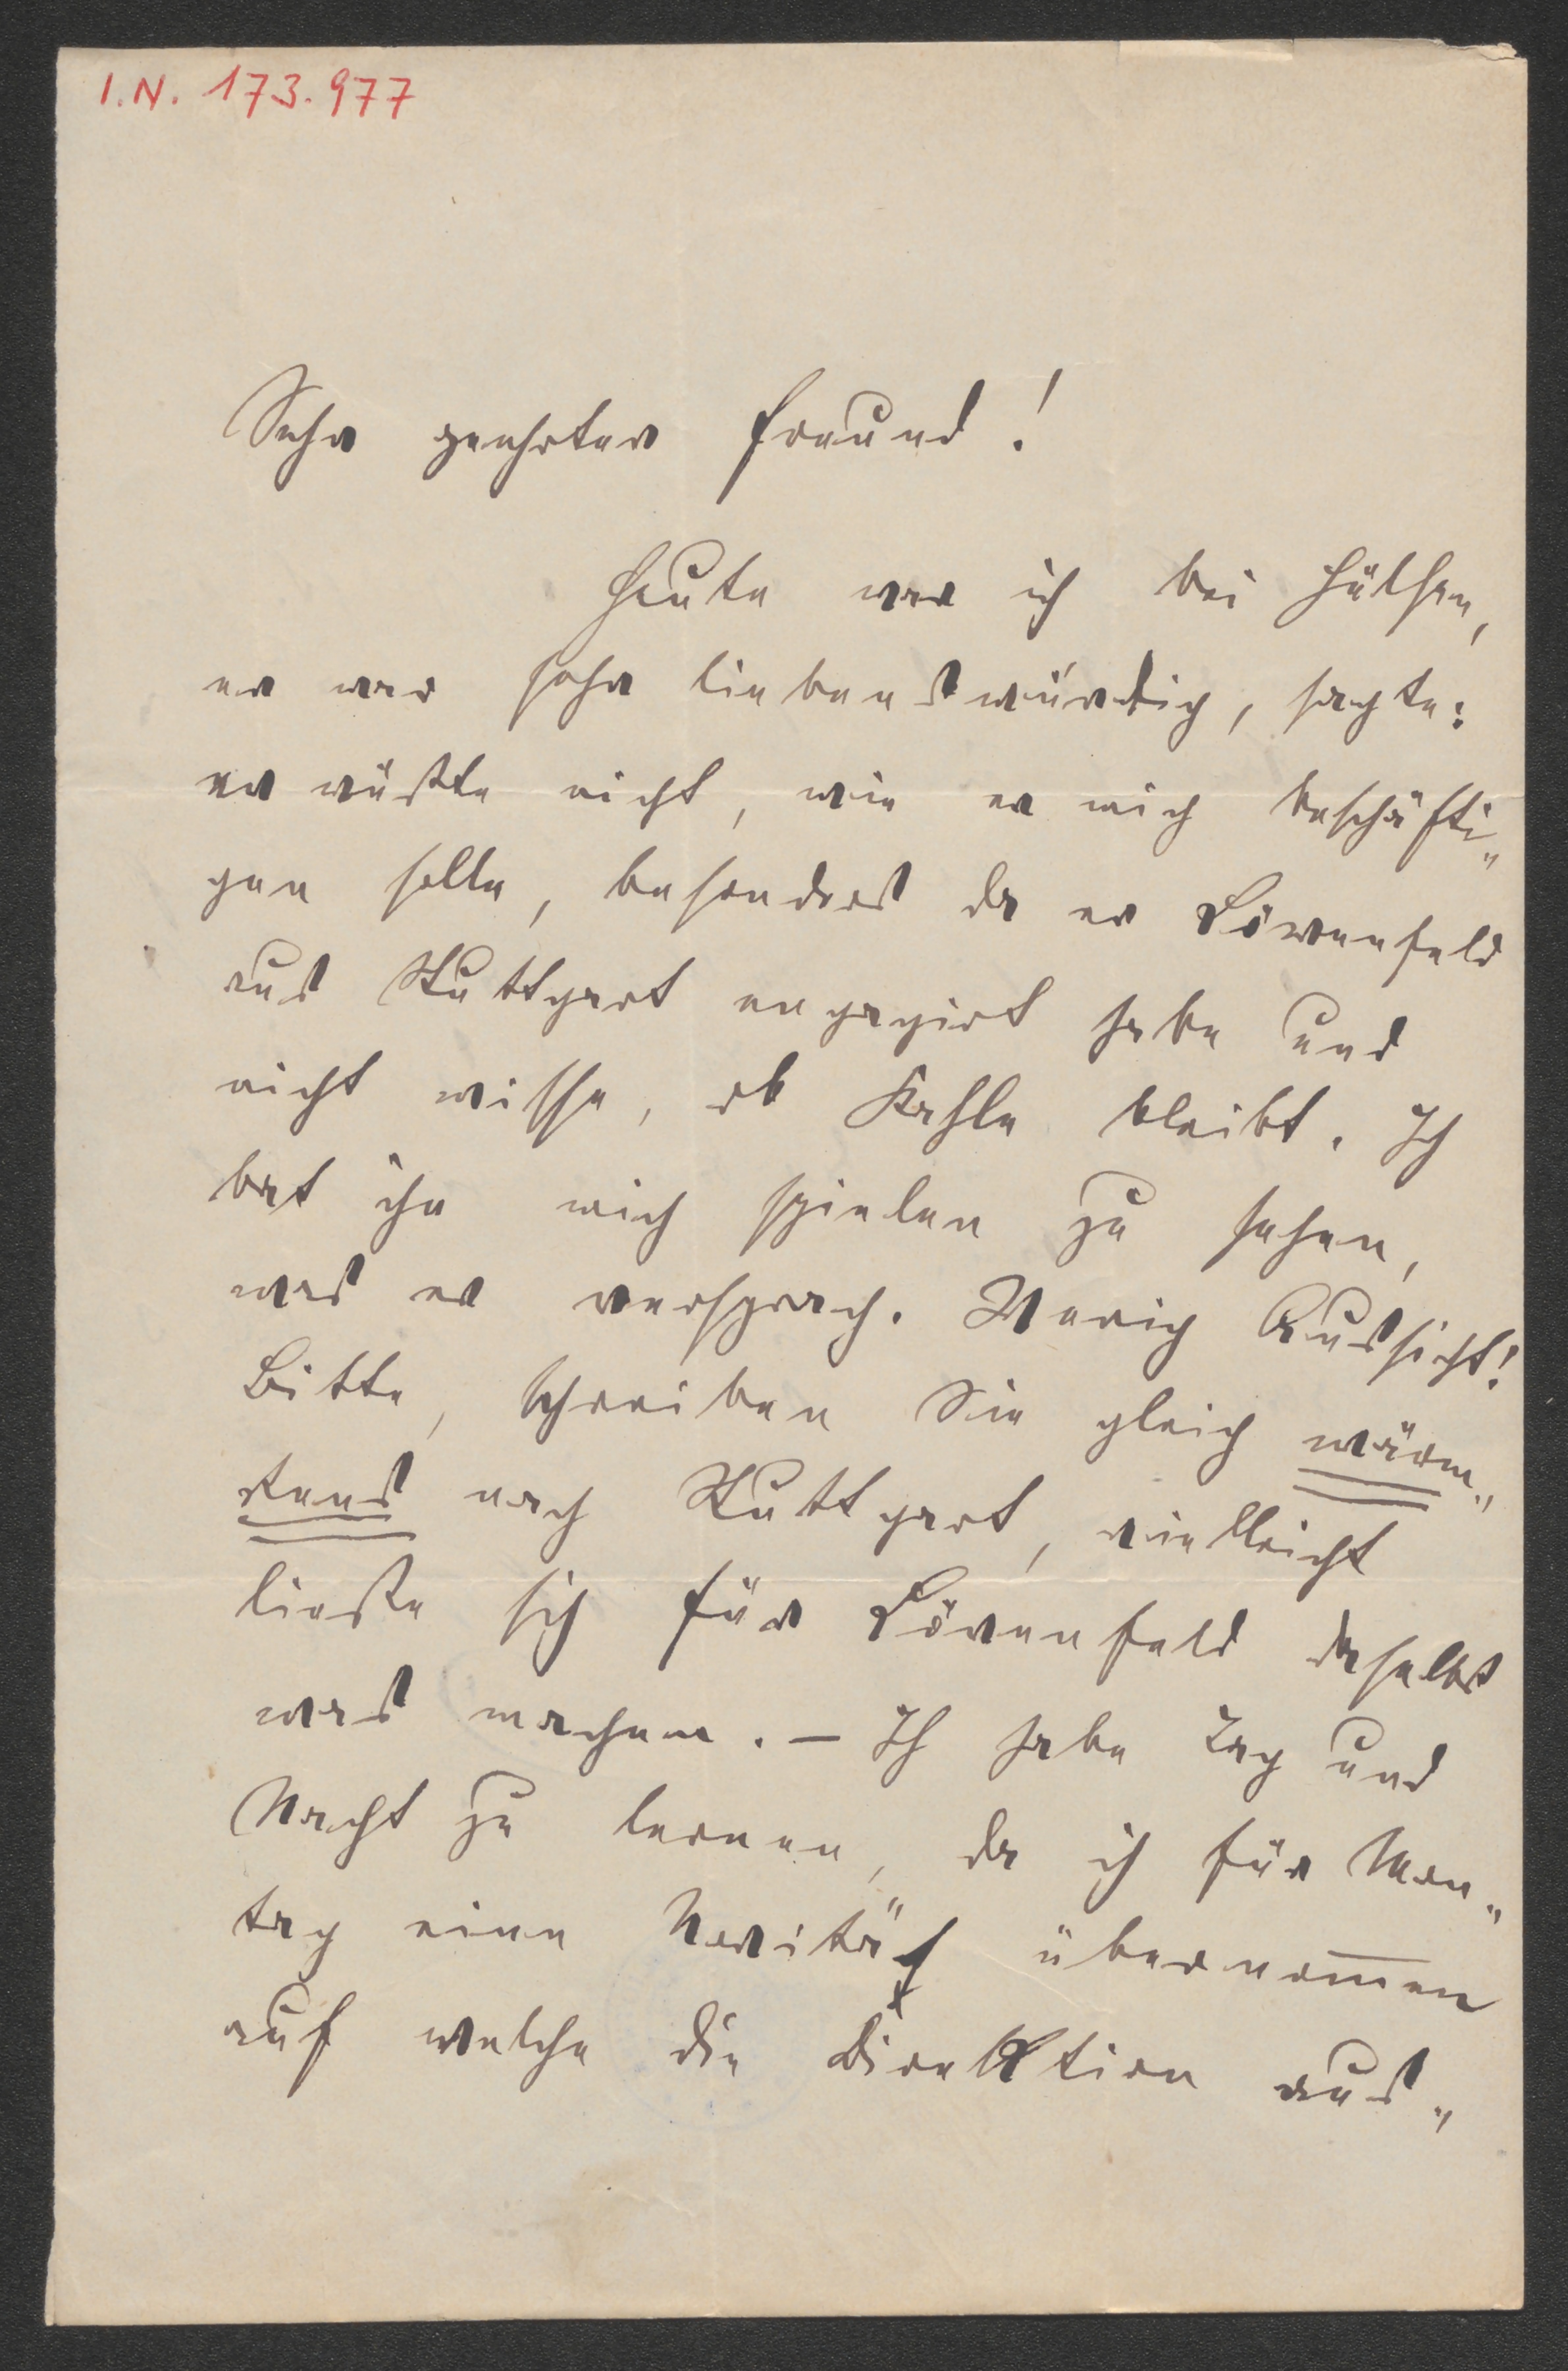 I.N. 173.977
Sehr geehrter Freund!
Heute war ich bei Hülsen,
er war sehr liebenswürdig, sagte:
er wüßte nicht, wie er mich beschäfti„
gen solle, besonders da er Löwenfeld
aus Stuttgart engagirt habe und
nicht wisse, ob Kahle bleibt. Ich
bat ihn mich spielen zu sehen,
was er versprach. Wenig Aussicht!
Bitte, schreiben Sie gleich wärm„
stens nach Stuttgart, vielleicht
ließe sich für Löwenfeld daselbst
was machen. – Ich habe Tag und
Nacht zu lernen, da ich für Mon„
tag eine Novität übernommen
auf welche die Direktion aus„